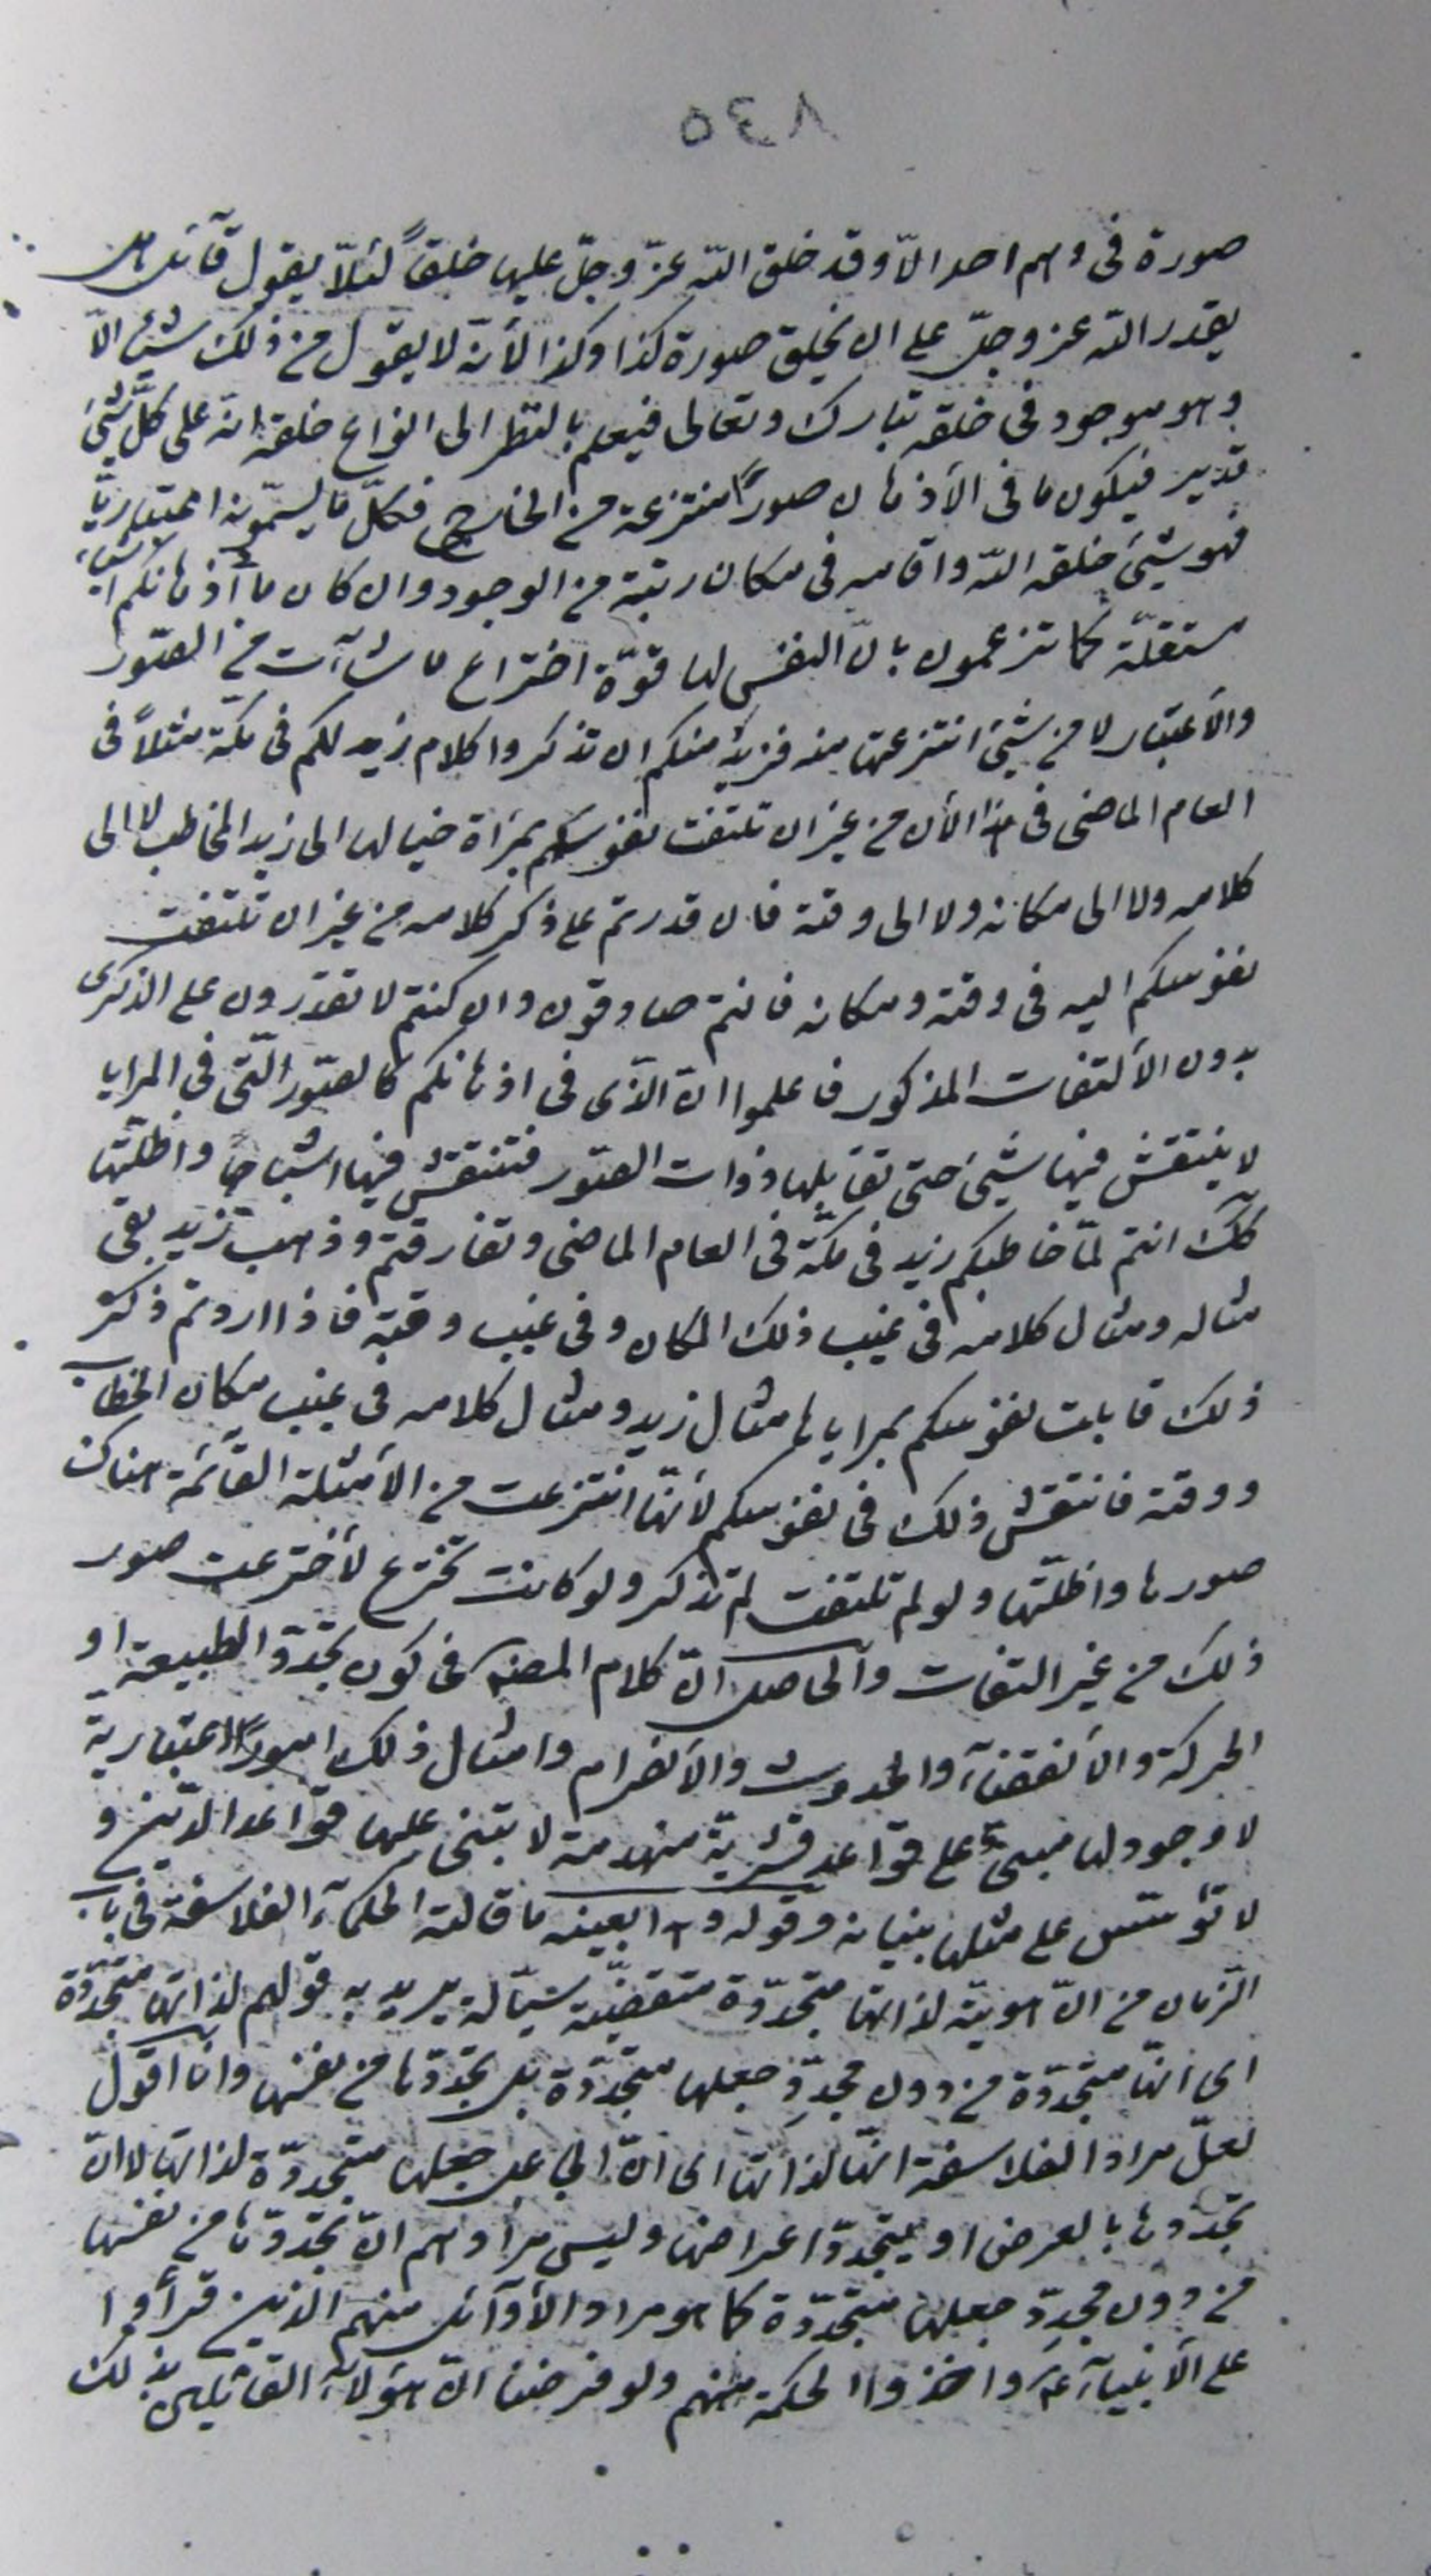 ٥٤٨
صورة فى وهم احد الّا وقد خلق اللّه عزّ وجلّ عليها خلقاً لئلّا يقول قآئل هل
يقدر اللّه عز وجلّ على ان يخلق صورة كذا وكذا لأنّه لا يقول من ذلك شيئا الّا
وهو موجود فى خلقه تبارك وتعالى فيعلم بالنظر الى انواع خلقه انّه على كلّ شئ
قدير فيكون ما فى الأذهان صوراً منتزعة من الخارج فكلّ ما يسمّونه اعتباريّا
فهو شئ خلقه اللّه واقامه فى مكان رتبته من الوجود وان كان ما فى اذهانكم اشيآء
مستقلّة كما تزعمون بانّ النفس لها قوّة اختراع ما شآءت من الصّور
والأعتبار لا من شئ انتزعتها منه فنريد منكم ان تذكروا كلام زيد لكم فى مكّة مثلاً فى
العام الماضى فى هذا الأن من غير ان تلتفت نفوسكم بمرأة خيالها الى زيد المخاطب لا الى
كلامه ولا الى مكانه ولا الى وقته فان قدرتم على ذكر كلامه من غير ان تلتفت
نفوسكم اليه فى وقته ومكانه فانتم صادقون وان كنتم لا تقدرون على الذكرى
بدون الألتفات المذكور فاعلموا انّ الّذى فى اذهانكم كالصّور الّتى فى المرايا
لا ينتقش فيها شئ حتى تقابلها ذوات الصّور فتنتقش فيها اشباحها واظلّتها
كك انتم لمّا خاطبكم زيد فى مكّة فى العام الماضى وتفارقتم وذهب زيد بقى
مثاله ومثال كلامه فى غيب ذلك المكان وفى غيب وقته فاذا اردتم ذكر
ذلك قابلت نفوسكم بمراياها مثال زيد ومثال كلامه فى غيب مكان الخطاب
ووقته فانتقش ذلك فى نفوسكم لأنّها انتزعت من الأمثلة القآئمة هناك
صورها واظلّتها ولو لم تلتفت لم تذكر ولو كانت تخترع لأخترعت صور
ذلك من غير التفات والحاصل انّ كلام المصنف فى كون تجدّد الطبيعة او
الحركة والأنقضآء والحدوث والأنصرام وامثال ذلك اموراً اعتبارية
لا وجود لها مبنىّ على قواعد قشريّة منهدمة لا يبتنى عليها قواعد الدّين و
لا تؤسّس على مثلها بنيانه وقوله وهذا بعينه ما قالته الحكمآء الفلاسفة فى باب
الزمان من انّ هويّته لذاتها متجدّدة متقضّية سيّالة يريد به قولهم لذاتها متجدّدة
اى انّها متجدّدة من دون مجدّد جعلها متجدّدة بل تجدّدها من نفسها وانا اقول
لعلّ مراد الفلاسفة انّها لذاتها اى انّ الجاعل جعلها متجدّدة لذاتها لا انّ
تجدّدها بالعرض او بتجدّد اعراضها وليس مرادهم انّ تجدّدها من نفسها
من دون مجدّد جعلها متجدّدة كما هو مراد الأوآئل منهم الذين قرأوا
على الأنبيآء ع واخذوا الحكمة منهم ولو فرضنا انّ هؤلآء القائلين بذلك